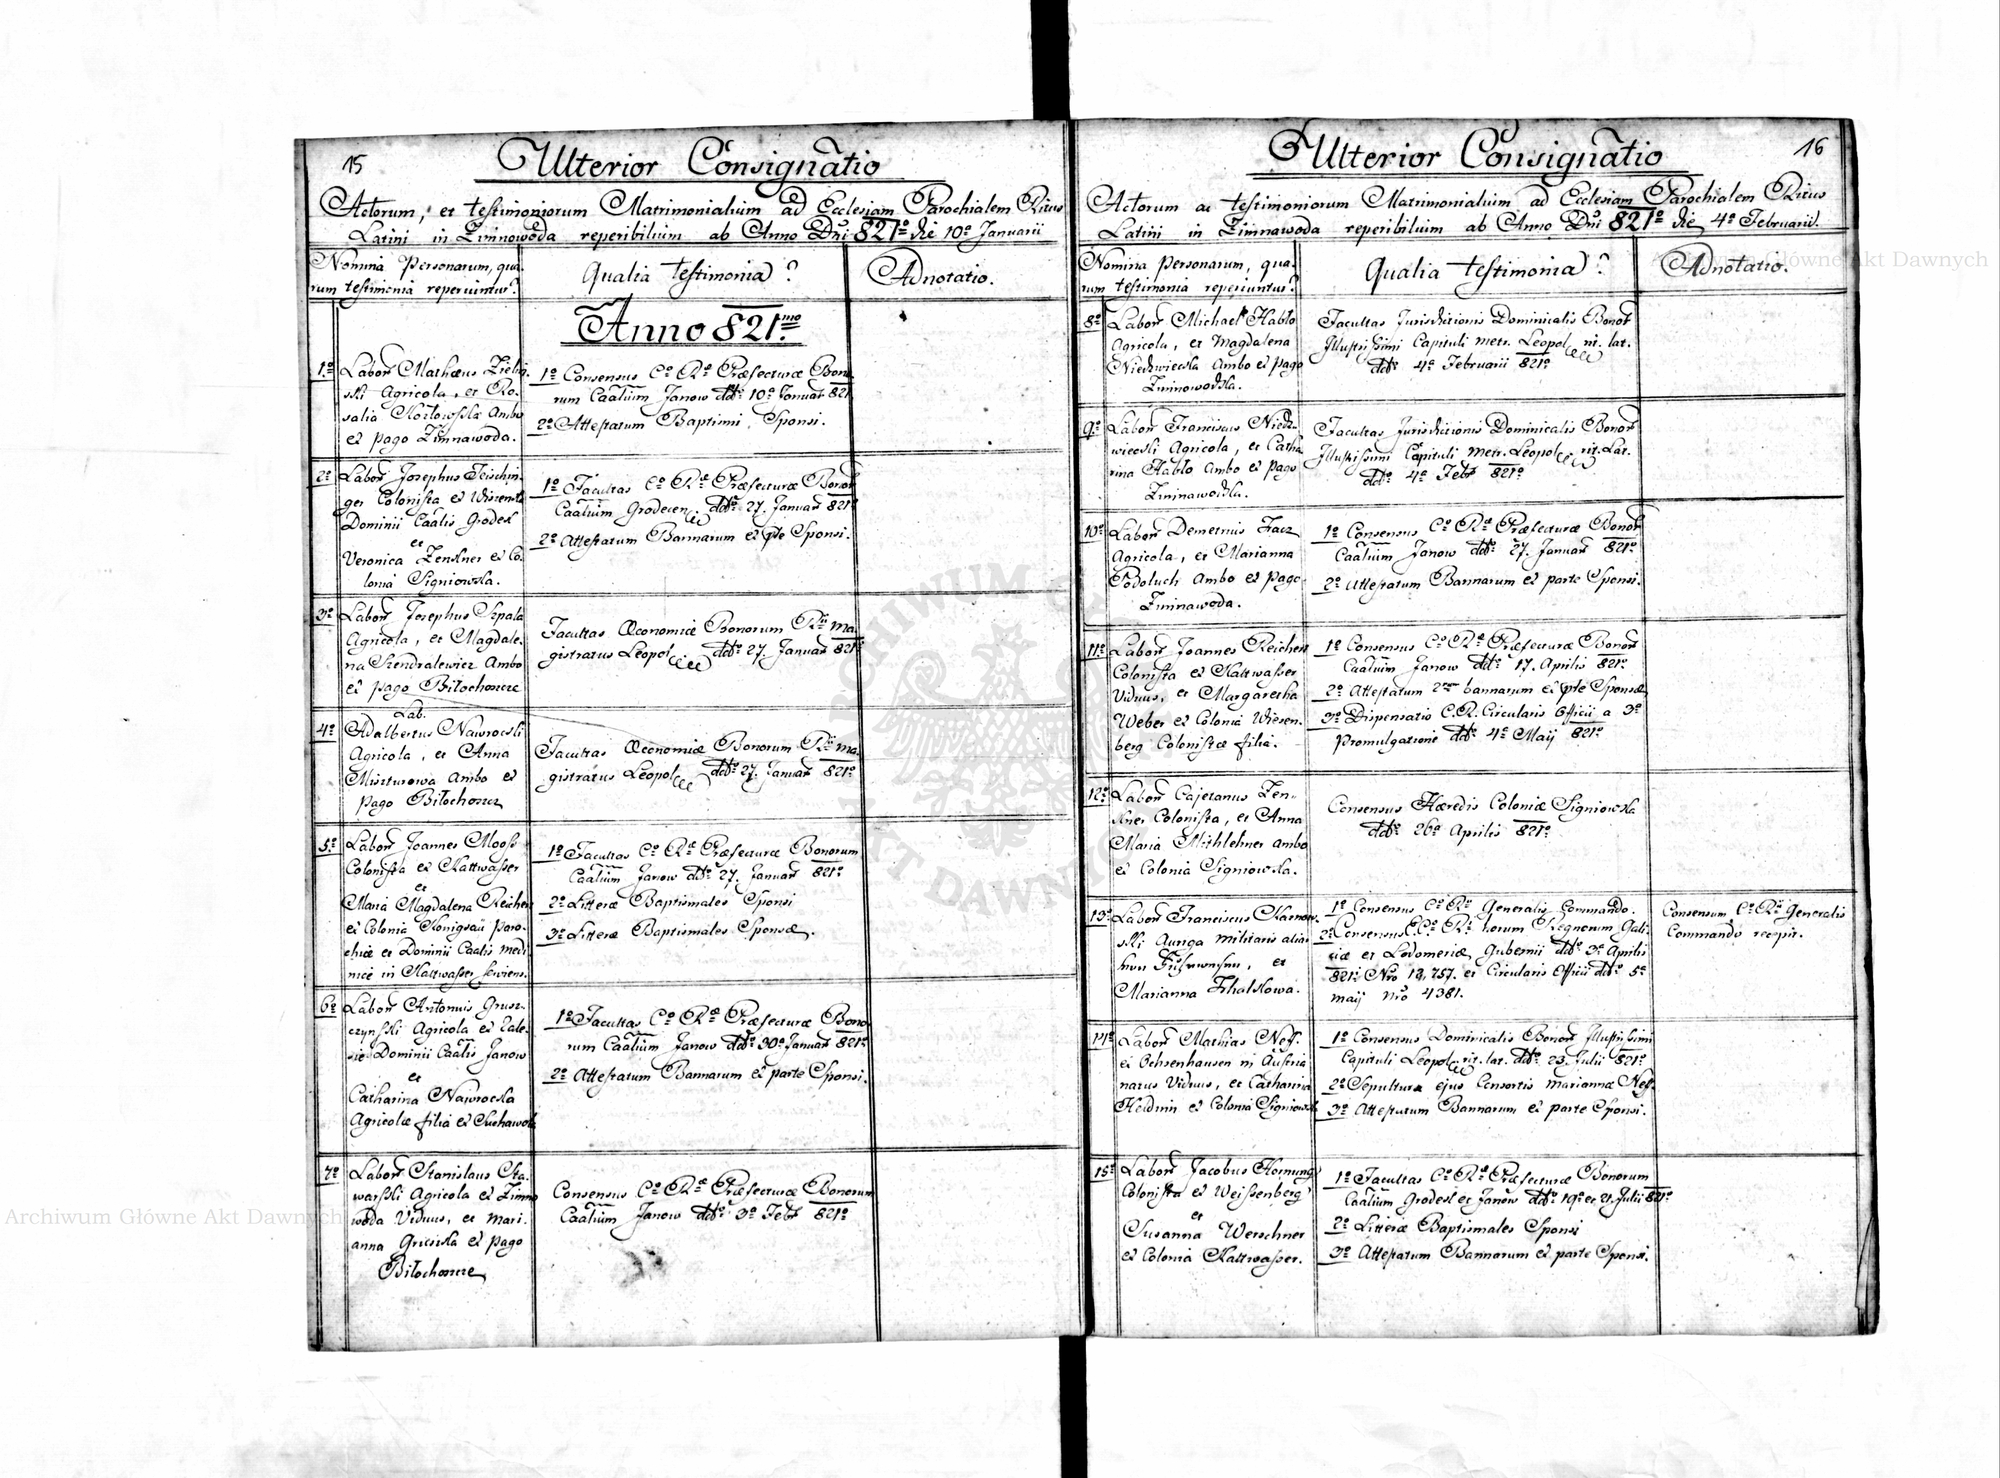 15
Ulterior Consignatio
Actorum, et testimoniorum Matrimonialium ad Ecclesiam Parochialem Ritus
Latini in Zimnowoda reperibilium ab Anno Dni 821o die 10a Januarii
Nomina Personarum, qua-
rum testimonia reperiuntur?
Qualia testimonia?
Adnotatio.
Anno 821mo
1o
Labor Mathæus Zielin
ski Agricola, et Ro-
salia Kozłowska Ambo
ex pago Zimnawoda.
1o Consensus Co Ræ Præfecturæ Bono
rum Caalium Janow ddto 10a Januar 821
2o Attestatum Baptismi Sponsi.
2o
Labor Josephus
ger Colonista ex
Dominii Caalis Grodek
et
Veronica Zenkner ex Co-
lonia Signiowka.
1o Facultas Co Ræ Præfecturæ Bonor
Caalium Grodecen ddto 27. Januar 821o
2o Attestatum Bannarum ex pte Sponsi.
3o
Labor Josephus Szpala
Agricola, et Magdale-
na Szendralewicz Ambo
ex pago Biłochorcze
Facultas Œconomiæ Bonorum Rii Ma
gistratus Leopol ddto 27. Januar 821o
4o
Lab.
Adalbertus Nawrocki
Agricola, et Anna
Miszturowa Ambo ex
pago Biłohorcz
Facultas Œconomiæ Bonorum Rii Ma
gistratus Leopol ddto 27. Januar 821o
5o
Labor Joannes Mooss
Colonista ex Kattwasser
et
Maria Magdalena Reichert
ex Colonia Königsau Paro-
chiæ et Dominii Caalis Medi
nicé in Kattwasser serviens.
1o Facultas Co Ræ Præfecturæ Bonorum
Caalium Janow ddto 27. Januar 821o
2o Litteræ Baptismales Sponsi
3o Litteræ Baptismales Sponsæ.
6o
Labor Antonius Grusz-
czynski Agricola ex Zale-
sie Dominii Caalis Janow
et
Catharina Nawrocka
Agricolæ filia ex Suchawola
1o Facultas Co Ræ Præfecturæ Bono
rum Caalium Janow ddto 30a Januar 821o
2o Attestatum Bannarum ex parte Sponsi.
7o
Labor Stanislaus Sta-
warski Agricola ex Zimno
woda Viduus, et Mari-
anna ex pago
Biłochorcze
Consensus Co Ræ Præfecturæ Bonorum
Caalium Janow ddto 3a Febr 821o
16
Ulterior Consignatio
Actorum ac testimoniorum Matrimonialium ad Ecclesiam Parochialem Ritus
Latini in Zimnawoda reperibilium ab Anno Dni 821o die 4a Februarii.
Nomina Personarum, qua-
rum testimonia reperiuntur?
Qualia testimonia?
Adnotatio.
8o
Labor Michael Habło
Agricola, et Magdalena
Niedzwiecka Ambo ex pago
Zimnowodka.
Facultas Jurisdictionis Dominicalis Bonor
Illustrissimi Capituli metr. Leopol rit. lat.
ddto 4a Februarii 821o
9o
Labor Franciscus Niedz-
wiecki Agricola, et Catha
rina Habło Ambo ex pago
Zimnawodka.
Facultas Jurisdictionis Dominicalis Bonor
Illustrissimi Capituli metr. Leopol rit. Lat.
ddto 4a Febr 821o
10o
Labor Demetrius Tracz
Agricola, et Marianna
Podoluch Ambo ex pago
Zimnawoda.
1o Consensus Co Ræ Præfecturæ Bonor
Caalium Janow ddto 27. Januar 821o
2o Attestatum Bannarum ex parte Sponsi.
11o
Labor Joannes Reichert
Colonista ex Kattwasser
Viduus, et Margaretha
Weber ex Colonia Wiesen-
berg Colonistæ filia.
1o Consensus Co Ræ Præfecturæ Bonor
Caalium Janow ddto 17. Aprilis 821o
2o Attestatum 2rum bannarum ex pte Sponsæ
3o Dispensatio C.R. Circularis Officii a 3a
Promulgatione ddto 4a Maij 821o
12o
Labor Cajetanus Zen-
kner Colonista, et Anna
Maria Mithlehner ambo
ex Colonia Signiowka.
Consensus Hæredis Coloniæ Signiowka
ddto 26a Aprilis 821o
13o
Labor Franciscus Karnow-
ski Auriga militaris alias
Marianna Michalkowa.
1o Consensus Co Ri Generalis Commando.
2o Consensus E. Co Ri horum Regnorum Gali-
ciæ et Lodomeriæ, Gubernii ddto 3a Aprilis
821o Nro 18,757. et Circularis Officii ddto 5a
maij Nro 4381.
Consensum Co Ri Generalis
Commando recepit.
14o
Labor Mathias Neff.
ex Ochsenhausen in Austria
natus Viduus, et Catharina
Heldnin ex Colonia Signiowka
1o Consensus Dominicalis Bonor Illustrissimi
Capituli Leopol rit. lat. ddto 23. Julii 821o
2o Sepultura ejus Consortis Mariannæ Neff
3o Attestatum Bannarum ex parte Sponsi.
15o
Labor Jacobus Hornung
Colonista ex Weissenberg
et
Susanna Werschner
ex Colonia Kattwasser.
1o Facultas Co Ræ Præfecturæ Bonorum
Caalium Grodek et Janow ddto 19a et 21. Julii 821o
2o Litteræ Baptismales Sponsi
3o Attestatum Bannarum ex parte Sponsi.
Archiwum Główne Akt Dawnych
Archiwum Główne Akt Dawnych